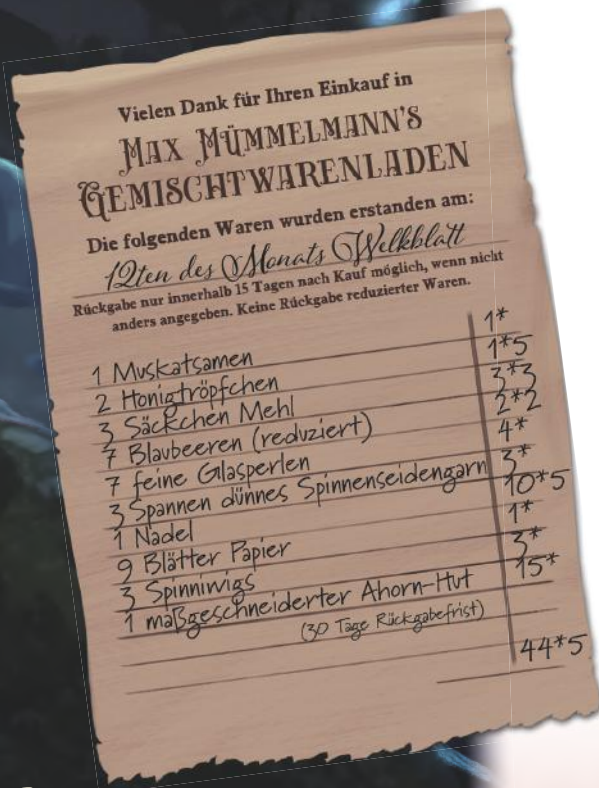 Vielen Dank für Ihren Einkauf in
MAX MÜMMELMANN'S
GEMISCHTWARENLADEN
Die folgenden Waren wurden erstanden am:
12ten des Monats Welkblatt
Rückgabe nur innerhalb 15 Tagen nach Kauf möglich, wenn nicht
anders angegeben. Keine Rückgabe reduzierter Waren.
1 Muskatsamen 1*
2 Honigtröpfchen 1*5
3 Säckchen Mehl 3*3
7 Blaubeeren (reduziert) 2*2
7 feine Glasperlen 4*
3 Spannen dünnes Spinnenseidengarn 3*
1 Nadel 10*5
9 Blätter Papier 1*
3 Spinniwigs 3*
1 maßgeschneiderter Ahorn-Hut 15*
(30 Tage Rückgabefrist)
44*5